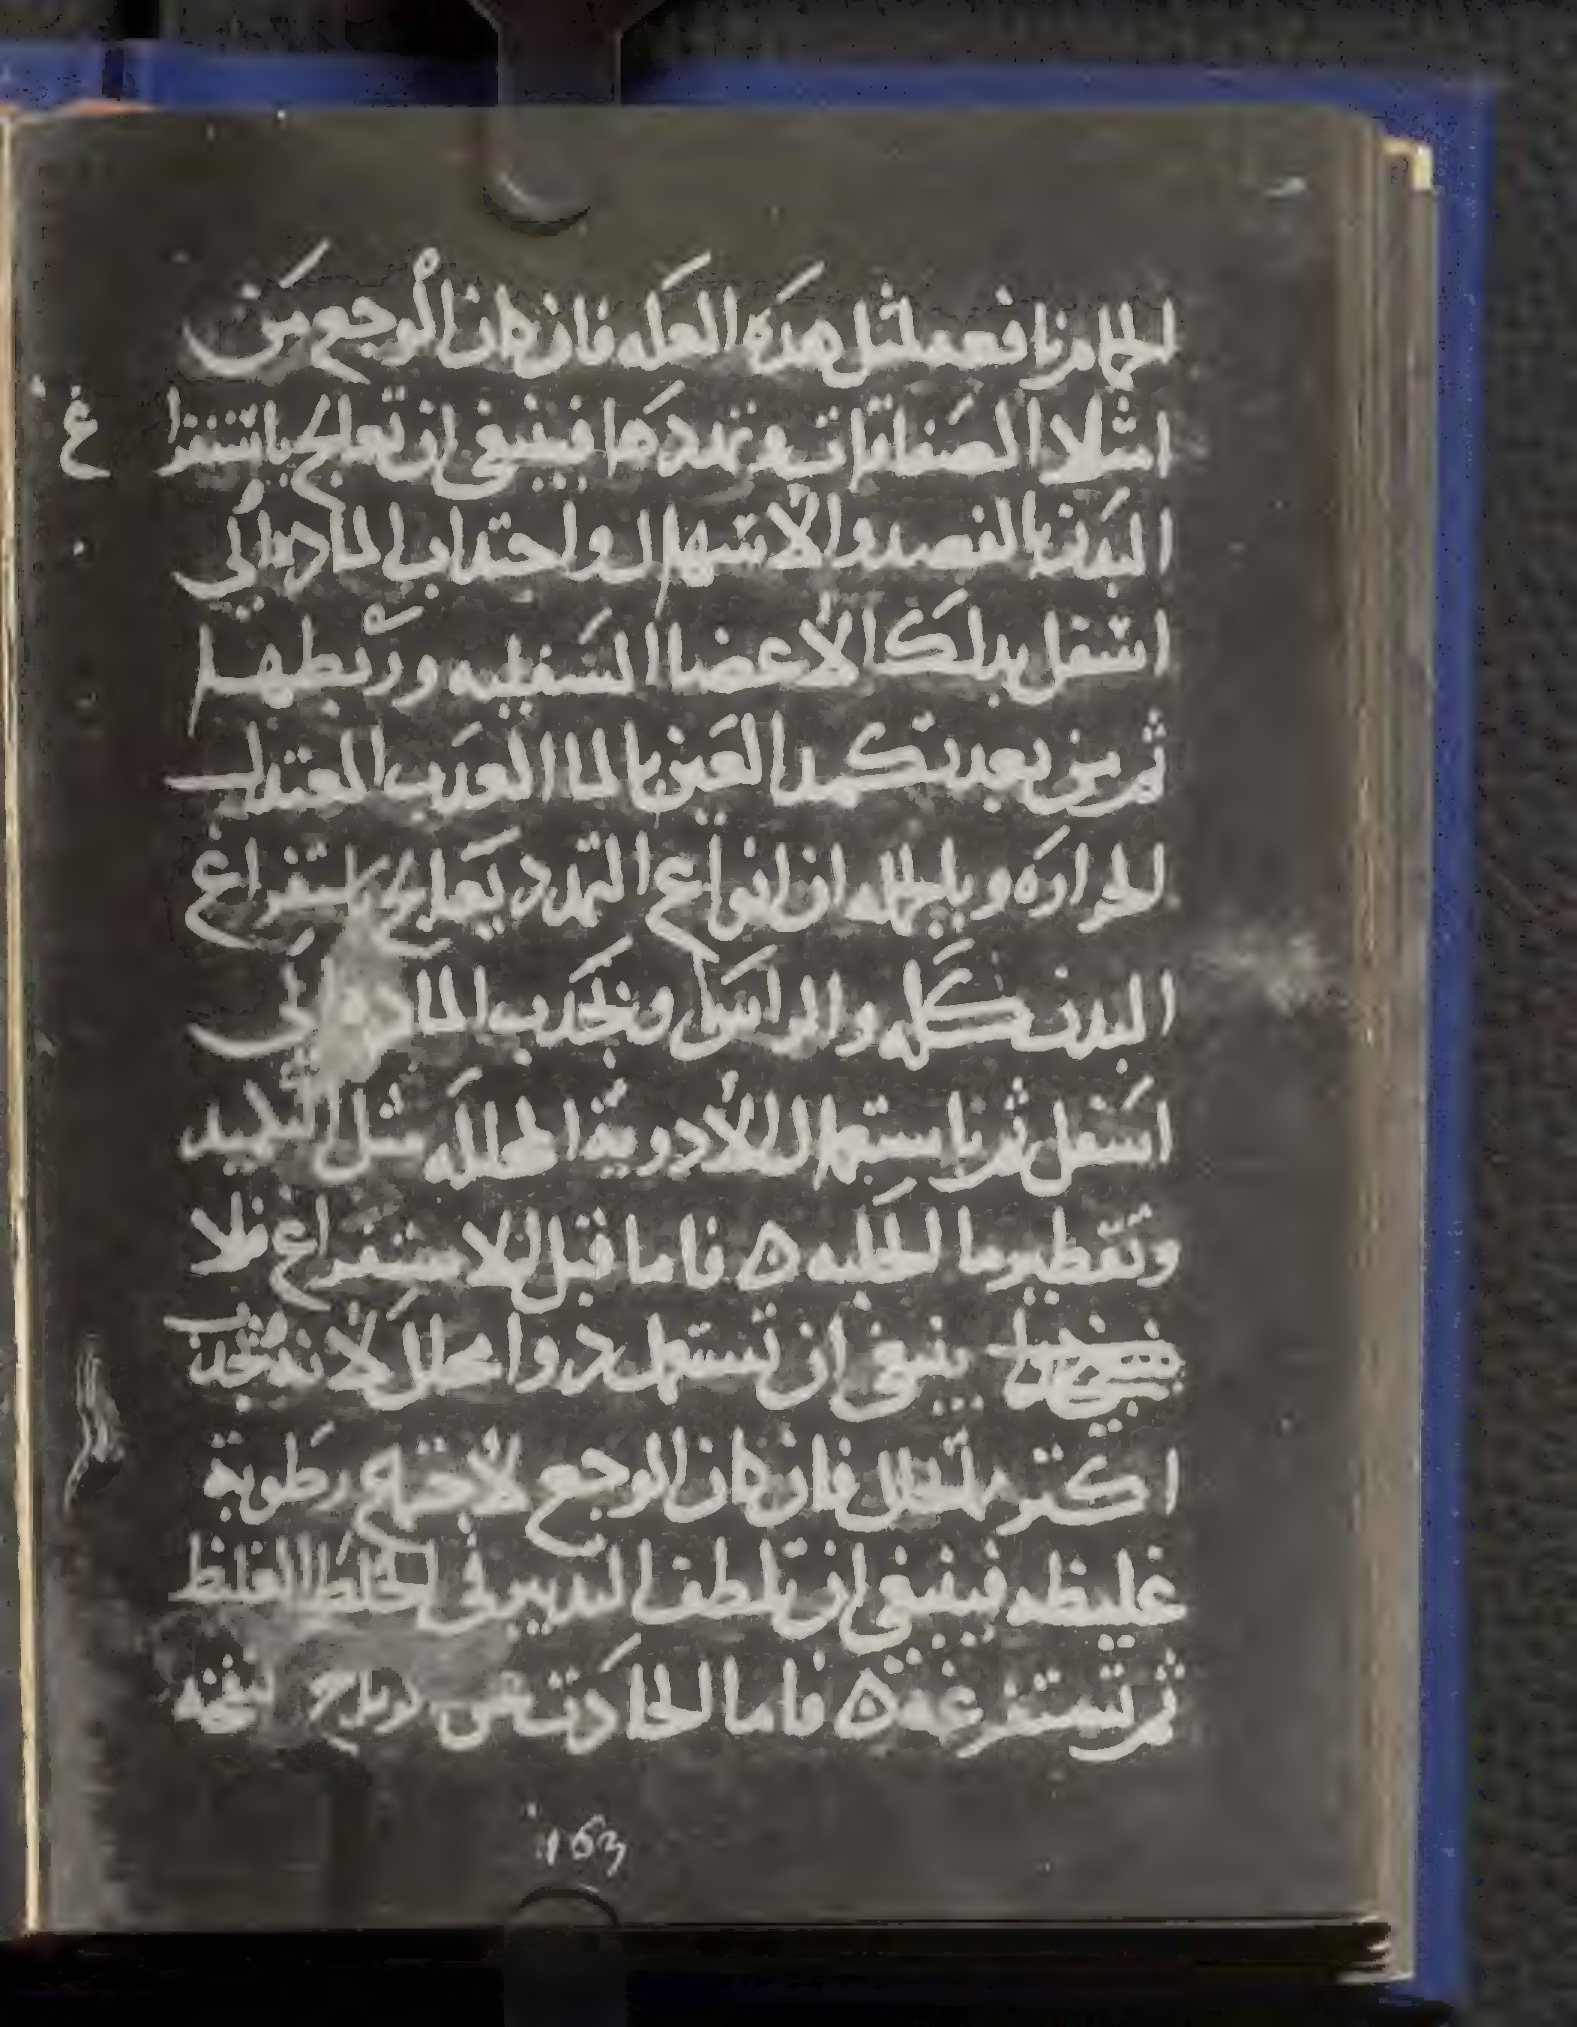 الحمام نافعه لمثل هده العله فان كان الوجع من
امثلا الصفاقات وتمددها فينبغي ان تعالج باستفرا غ
البدن بالفصد والاسهال واجتداب الماده الي
اسفل بدلك الاعضا السفليه وربطها
ثم من بعد تكمد العين بالما العدب المعتدل
الحراره وبالجمله ان انواع التمدد يعالج باستفراغ
البدن كله والراس وتجدب الماده الي
اسفل ثم باستعمال الادوية المحلله مثل التكميد
وتقطير ما الحلبه ٥ فاما قبل الاستفراغ فلا
ينبغي ان تستعمل دوا محلل لانه يجدب
اكثر مما يحلل فان كان الوجع لاجتماع رطوبة
غليظه فينبغي ان تلطف التدبير في الخلط الغليظ
ثم تستفرغه ٥ فاما الحادث عن لرياح نفخه
163